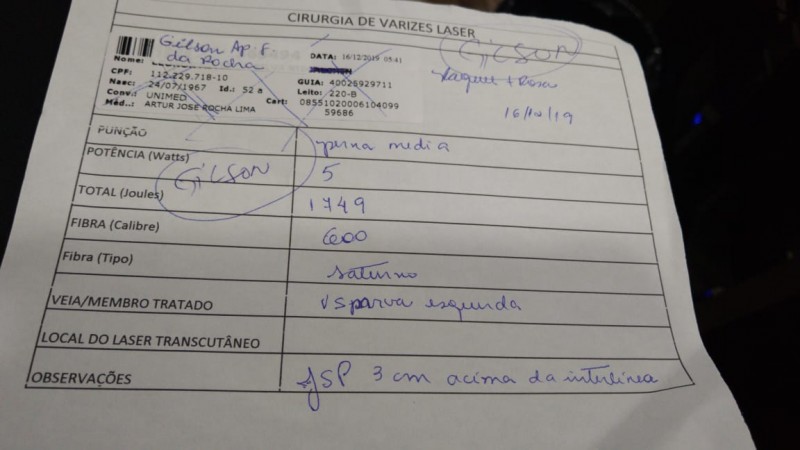 CIRURGIA DE VARIZES LASER
Gilson Ap. F
da Rocha
GILSON
Raquel + Rosa
16/12/19
Nome:
DATA: 16/12/2019 05:41
CPF: 112.229.718-10
GUIA: 40025929711
Nasc: 24/07/1967 Id.: 52 a
Leito: 220-B
Conv.: UNIMED
Cart: 08551020006104099
59686
Méd..: ARTUR JOSE ROCHA LIMA
PUNÇÃO perna media
POTÊNCIA (Watts) 5
GILSON
TOTAL (Joules) 1749
FIBRA (Calibre) 600
Fibra (Tipo) saturno
VEIA/MEMBRO TRATADO VS parva esquerda
LOCAL DO LASER TRANSCUTÂNEO
OBSERVAÇÕES JSP 3 cm acima da interlinea